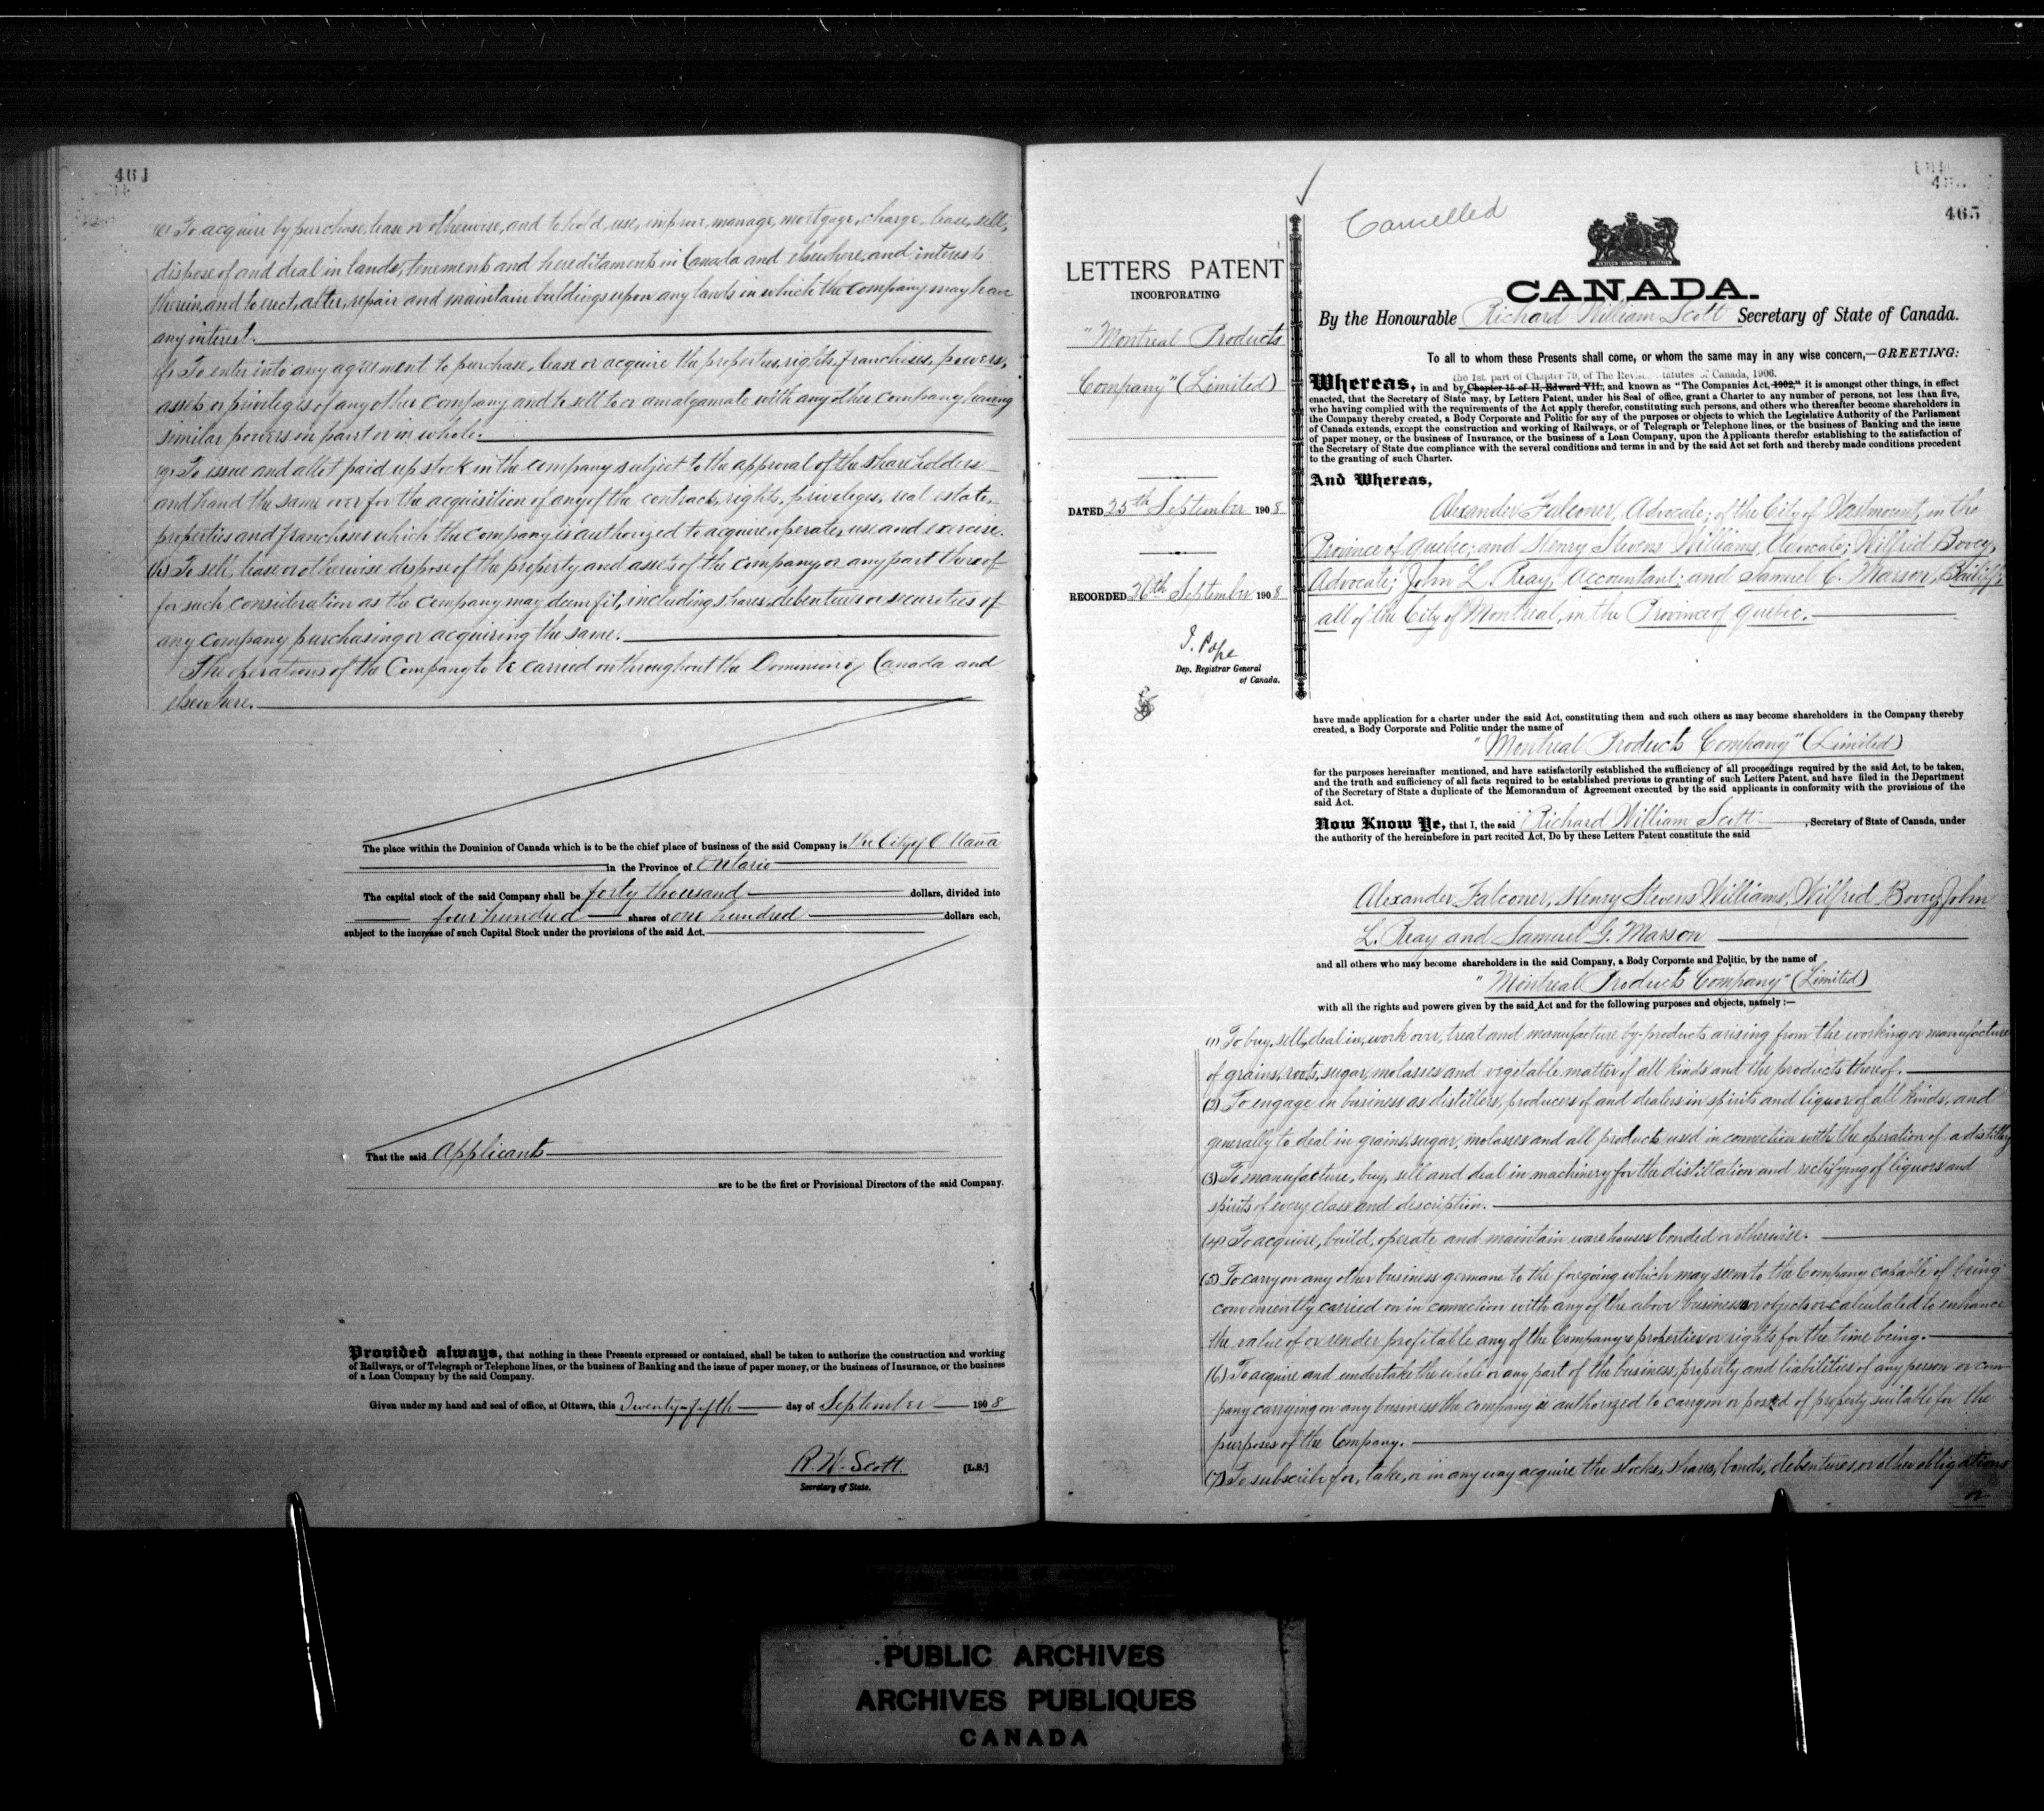 464
(e) To acquire by purchase, lease or otherwise, and to hold, use, improve, manage, mortgage, charge, lease, sell,
dispose of and deal in lands, tenements and hereditaments in Canada and elsewhere, and interests
therein, and to erect, alter, repair and maintain buildings upon any lands in which the company may have
any interest.
(f) To enter into any agreement to purchase, lease or acquire the properties, rights, franchises, powers,
assets or privileges of any other company and to sell to or amalgamate with any other company having
similar powers in part or in whole.
(g) To issue and allot paid up stock in the company subject to the approval of the shareholders
and hand the same over for the acquisition of any of the contracts, rights, privileges, real estate,
properties and franchises which the company is authorized to acquire, operate, use and exercise.
(h) To sell, lease or otherwise dispose of the property and assets of the company or any part thereof
for such consideration as the company may deem fit, including shares, debentures or securities of
any company purchasing or acquiring the same.
The operations of the Company to be carried on throughout the Dominion of Canada and
elsewhere.
The place within the Dominion of Canada which is to be the chief place of business of the said Company is the City of Ottawa
in the Province of Ontario
The capital stock of the said Company shall be forty thousand dollars, divided into
four hundred shares of one hundred dollars each,
subject to the increase of such Capital Stock under the provisions of the said Act.
That the said Applicants
are to be the first or Provisional Directors of the said Company.
Provided always, that nothing in these Presents expressed or contained, shall be taken to authorize the construction and working
of Railways, or of Telegraph or Telephone lines, or the business of Banking and the issue of paper money, or the business of Insurance, or the business
of a Loan Company by the said Company.
Given under my hand and seal of office, at Ottawa, this Twenty-fifth day of September 1908
R. W. Scott
[L.S.]
Secretary of State.
465
Cancelled
LETTERS PATENT
INCORPORATING
"Montreal Products
Company" (Limited)
DATED 25th September 1908
RECORDED 26th September 1908
J. Pope
Dep. Registrar General
of Canada.
CANADA.
By the Honourable Richard William Scott Secretary of State of Canada.
To all to whom these Presents shall come, or whom the same may in any wise concern,—GREETING:
the 1st. part of Chapter 79, of The Revised Statutes of Canada, 1906.
Whereas, in and by Chapter 15 of II, Edward VII., and known as "The Companies Act, 1902," it is amongst other things, in effect
enacted, that the Secretary of State may, by Letters Patent, under his Seal of office, grant a Charter to any number of persons, not less than five,
who having complied with the requirements of the Act apply therefor, constituting such persons, and others who thereafter become shareholders in
the Company thereby created, a Body Corporate and Politic for any of the purposes or objects to which the Legislative Authority of the Parliament
of Canada extends, except the construction and working of Railways, or of Telegraph or Telephone lines, or the business of Banking and the issue
of paper money, or the business of Insurance, or the business of a Loan Company, upon the Applicants therefor establishing to the satisfaction of
the Secretary of State due compliance with the several conditions and terms in and by the said Act set forth and thereby made conditions precedent
to the granting of such Charter.
And Whereas,
Alexander Falconer, Advocate; of the City of Westmount, in the
Province of Quebec; and Henry Stevens Williams, Advocate; Wilfrid Bovey,
Advocate; John L. Reay, Accountant; and Samuel G. Marson, Bailiff;
all of the City of Montreal, in the Province of Quebec.
have made application for a charter under the said Act, constituting them and such others as may become shareholders in the Company thereby
created, a Body Corporate and Politic under the name of
"Montreal Products Company" (Limited)
for the purposes hereinafter mentioned, and have satisfactorily established the sufficiency of all proceedings required by the said Act, to be taken,
and the truth and sufficiency of all facts required to be established previous to granting of such Letters Patent, and have filed in the Department
of the Secretary of State a duplicate of the Memorandum of Agreement executed by the said applicants in conformity with the provisions of the
said Act.
Now Know Ye, that I, the said Richard William Scott, Secretary of State of Canada, under
the authority of the hereinbefore in part recited Act, Do by these Letters Patent constitute the said
Alexander Falconer, Henry Stevens Williams, Wilfrid Bovey, John
L. Reay and Samuel G. Marson
and all others who may become shareholders in the said Company, a Body Corporate and Politic, by the name of
"Montreal Products Company" (Limited)
with all the rights and powers given by the said Act and for the following purposes and objects, namely :—
(1) To buy, sell, deal in, work over, treat and manufacture by-products arising from the working or manufacture
of grains, roots, sugar, molasses and vegetable matter of all kinds and the products thereof.
(2) To engage in business as distillers, producers of and dealers in spirits and liquor of all kinds, and
generally to deal in grains, sugar, molasses and all products used in connection with the operation of a distillery
(3) To manufacture, buy, sell and deal in machinery for the distillation and rectifying of liquors and
spirits of every class and description.
(4) To acquire, build, operate and maintain warehouses bonded or otherwise.
(5) To carry on any other business germane to the foregoing which may seem to the Company capable of being
conveniently carried on in connection with any of the above business or objects or calculated to enhance
the value of or render profitable any of the Company's properties or rights for the time being.
(6) To acquire and undertake the whole or any part of the business, property and liabilities of any person or com-
pany carrying on any business the company is authorized to carry on or of property suitable for the
purposes of the Company.
(7) To subscribe for, take, or in any way acquire the stocks, shares, bonds, debentures, or other obligations
or
PUBLIC ARCHIVES
ARCHIVES PUBLIQUES
CANADA